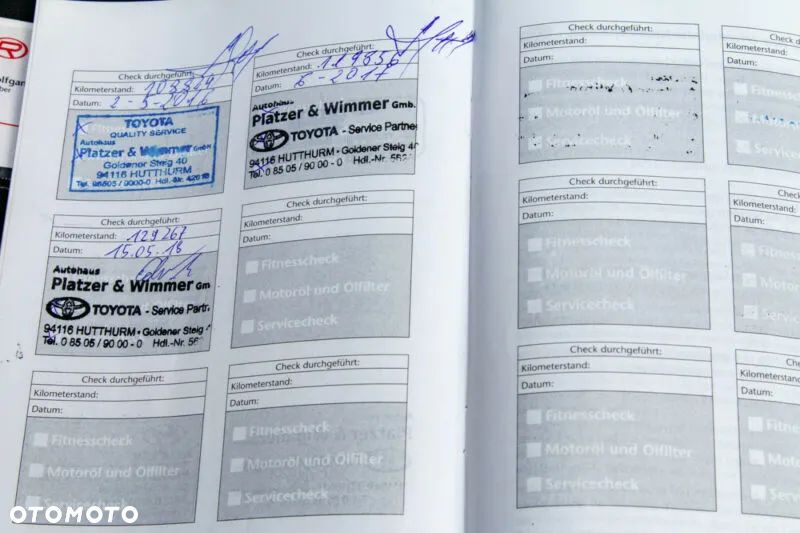 Check durchgeführt:
Kilometerstand: 103829
Datum: 2-5-2016
TOYOTA
QUALITY SERVICE
Autohaus
Platzer & Wimmer GmbH
Goldener Steig 40
94116 HUTTHURM
Tel. 08505 / 9000-0 Hdl.-Nr.
Check durchgeführt:
Kilometerstand: 119856
Datum: 6-2017
Autohaus
Platzer & Wimmer Gmb.
TOYOTA - Service Partne
94116 HUTTHURM • Goldener Steig 4
Tel. 0 85 05 / 90 00 - 0 Hdl.-Nr.
Check durchgeführt:
Kilometerstand: 129267
Datum: 15.05.18
Autohaus
Platzer & Wimmer Gm
TOYOTA - Service Partn
94116 HUTTHURM • Goldener Steig
Tel. 0 85 05 / 90 00 - 0 Hdl.-Nr. 56
Check durchgeführt:
Kilometerstand:
Datum:
Fitnesscheck
Motoröl und Ölfilter
Servicecheck
Check durchgeführt:
Kilometerstand:
Datum:
Fitnesscheck
Motoröl und Ölfilter
Servicecheck
Check durchgeführt:
Kilometerstand:
Datum:
Fitnesscheck
Motoröl und Ölfilter
Servicecheck
Check durchgeführt:
Kilometerstand:
Datum:
Fitnesscheck
Motoröl und Ölfilter
Servicecheck
Check
Kilometerstand:
Datum:
Fitnesscheck
Motoröl
Servicec
Check durchgeführt:
Kilometerstand:
Datum:
Fitnesscheck
Motoröl und Ölfilter
Servicecheck
Check
Kilometerstand:
Datum:
Fitnessch
Motoröl
Servicec
Check durchgeführt:
Kilometerstand:
Datum:
Fitnesscheck
Motoröl und Ölfilter
Servicecheck
Check
Kilometerstand:
Datum:
Fitness
Motoröl
Service
OTOMOTO